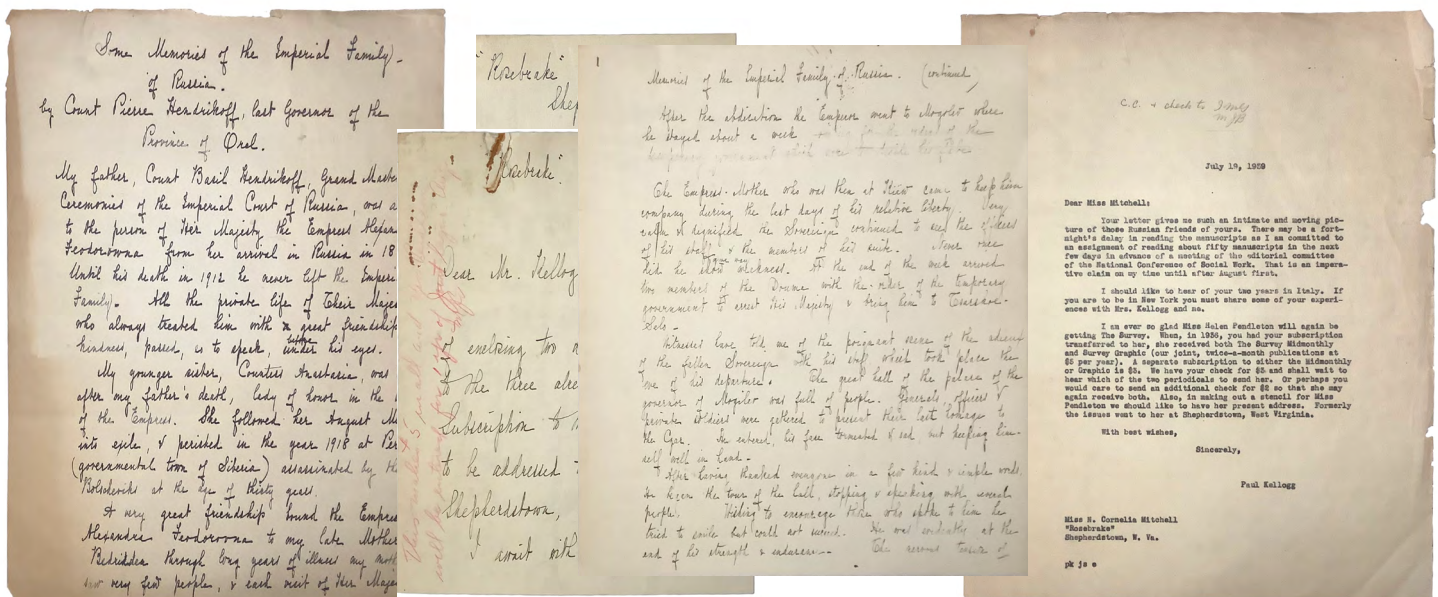 Some Memories of the Imperial Family
of Russia.
by Count Pierre Hendrikoff, last Governor of the
Province of Orel.
My father, Count Basil Hendrikoff, Grand Maste
Ceremonies of the Imperial Court of Russia, was a
to the person of Her Majesty the Empress Alexan
Feodorowna from her arrival in Russia in 18
Until his death in 1912 he never left the Imperi
Family. All the private life of Their Majes
who always treated him with great friendship
kindness, passed, so to speak, under his eyes.
My younger sister, Countess Anastasia, was
after my father's death, lady of honor in the
of the Empress. She followed her August M
into exile, & perished in the year 1918 at Per
(governmental town of Siberia) assassinated by the
Bolscheviks at the age of thirty years.
A very great friendship bound the Empres
Alexandra Feodorowna to my late Mother
Bedridden through long years of illness my moth
saw very few people, & each visit of Her Maje
"Rosebrake"
Shep
"Rosebrake".
Dear Mr. Kellog
enclosing two
the three
Subscription to
to be addressed
Shepherdstown,
I await with
Memories of the Imperial Family of Russia. (continued)
After the abdication the Emperor went to Mogolef where
he stayed about a week
The Empress-Mother who was then at Kieff came to keep him
company during the last days of his relative liberty. Very
calm & dignified the Sovereign continued to see the officers
of his staff & the members of his suite. Never once
did he show weakness. At the end of the week arrived
two members of the Douma with the order of the Temporary
government to arrest His Majesty & bring him to Tsarskoe-
Selo -
Witnesses have told me of the poignant scene of the adieux
of the fallen Sovereign with his staff which took place the
eve of his departure. The great hall of the palace of the
governor of Mogilev was full of people. Generals, officers &
private soldiers were gathered to present their last homage to
the Czar. He entered, his face tormented & sad, but keeping him-
self well in hand.
After having thanked everyone in a few kind & simple words
he began the tour of the hall, stopping & speaking with several
people. Wishing to encourage those who spoke to him he
tried to smile but could not succeed. He was evidently at the
end of his strength & endurance -- The nervous tension of
C.C. & check to
July 19, 1939
Dear Miss Mitchell:
Your letter gives me such an intimate and moving pic-
ture of those Russian friends of yours. There may be a fort-
night's delay in reading the manuscripts as I am committed to
an assignment of reading about fifty manuscripts in the next
few days in advance of a meeting of the editorial committee
of the National Conference of Social Work. That is an impera-
tive claim on my time until after August first.
I should like to hear of your two years in Italy. If
you are to be in New York you must share some of your experi-
ences with Mrs. Kellogg and me.
I am ever so glad Miss Helen Pendleton will again be
getting The Survey. When, in 1938, you had your subscription
transferred to her, she received both The Survey Midmonthly
and Survey Graphic (our joint, twice-a-month publications at
$5 per year). A separate subscription to either the Midmonthly
or Graphic is $3. We have your check for $3 and shall wait to
hear which of the two periodicals to send her. Or perhaps you
would care to send an additional check for $2 so that she may
again receive both. Also, in making out a stencil for Miss
Pendleton we should like to have her present address. Formerly
the issues went to her at Shepherdstown, West Virginia.
With best wishes,
Sincerely,
Paul Kellogg
Miss N. Cornelia Mitchell
"Rosebrake"
Shepherdstown, W. Va.
pk js e